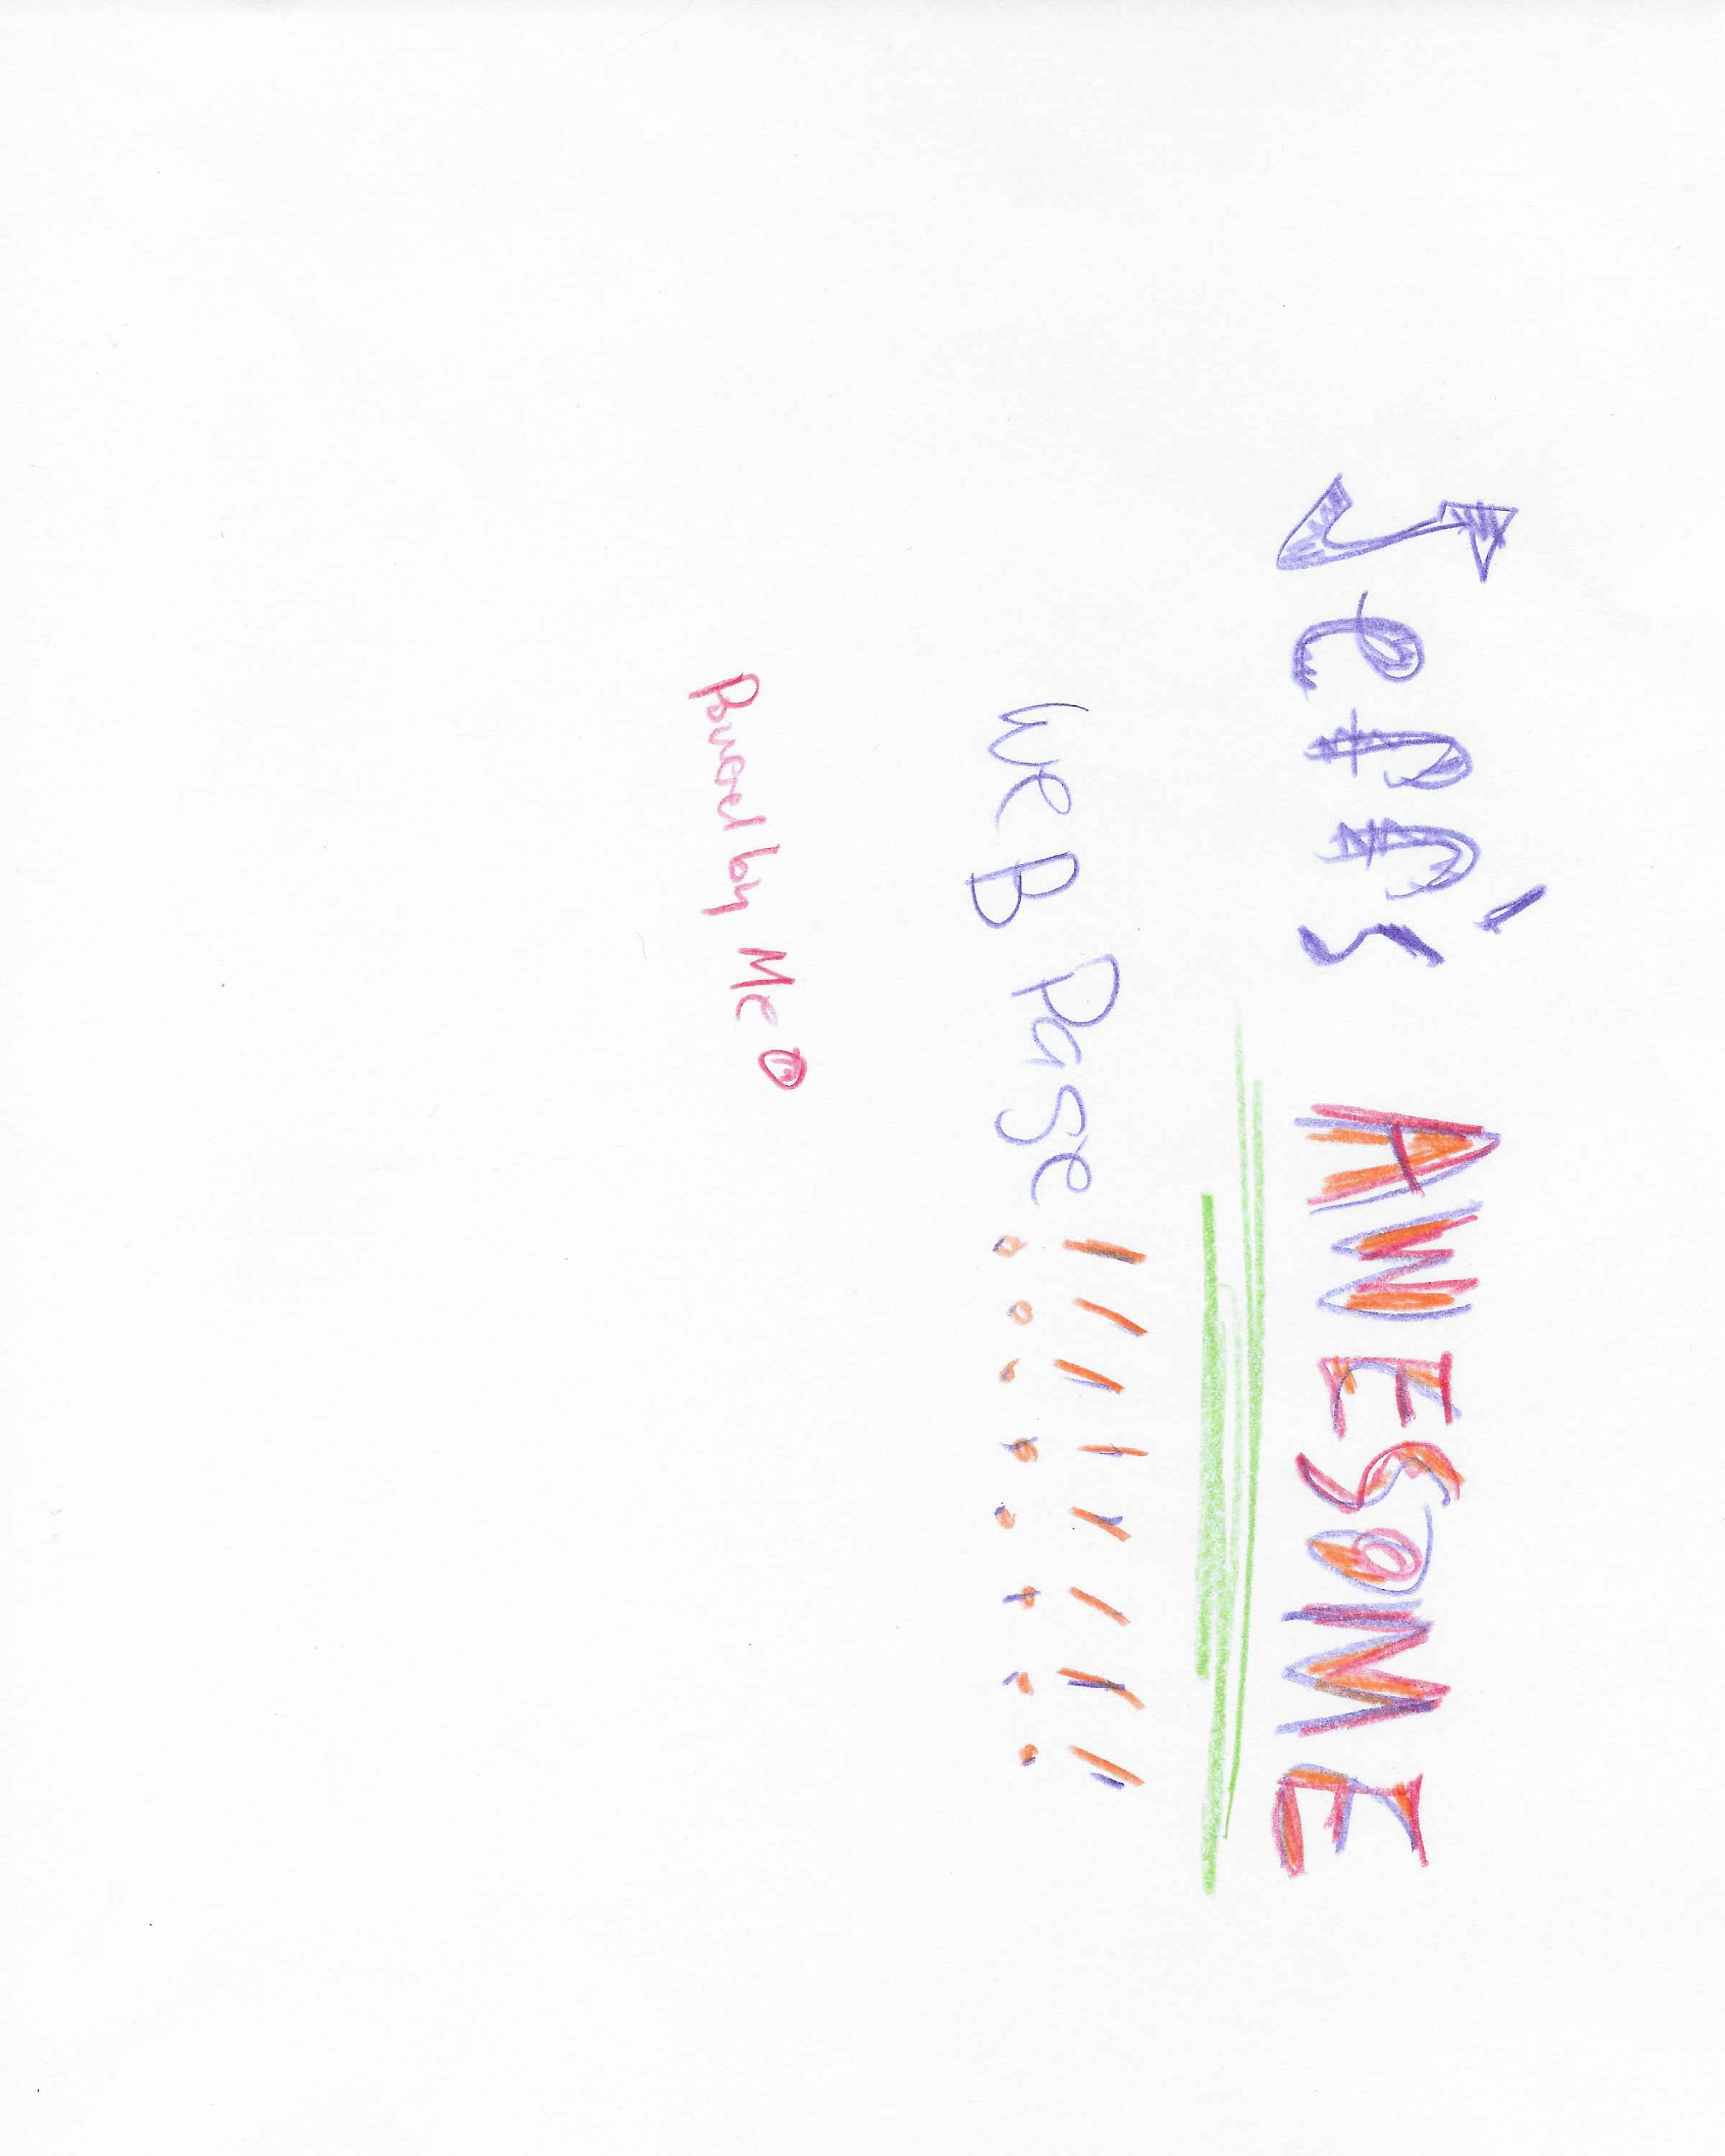 Jeff's AWESOME
WeB Page!!!!!!!!
Powered by Me